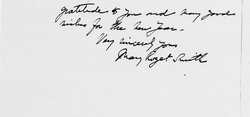 gratitude to you and many good
wishes for the New Year.
Very sincerely yours
Mary Rozet Smith